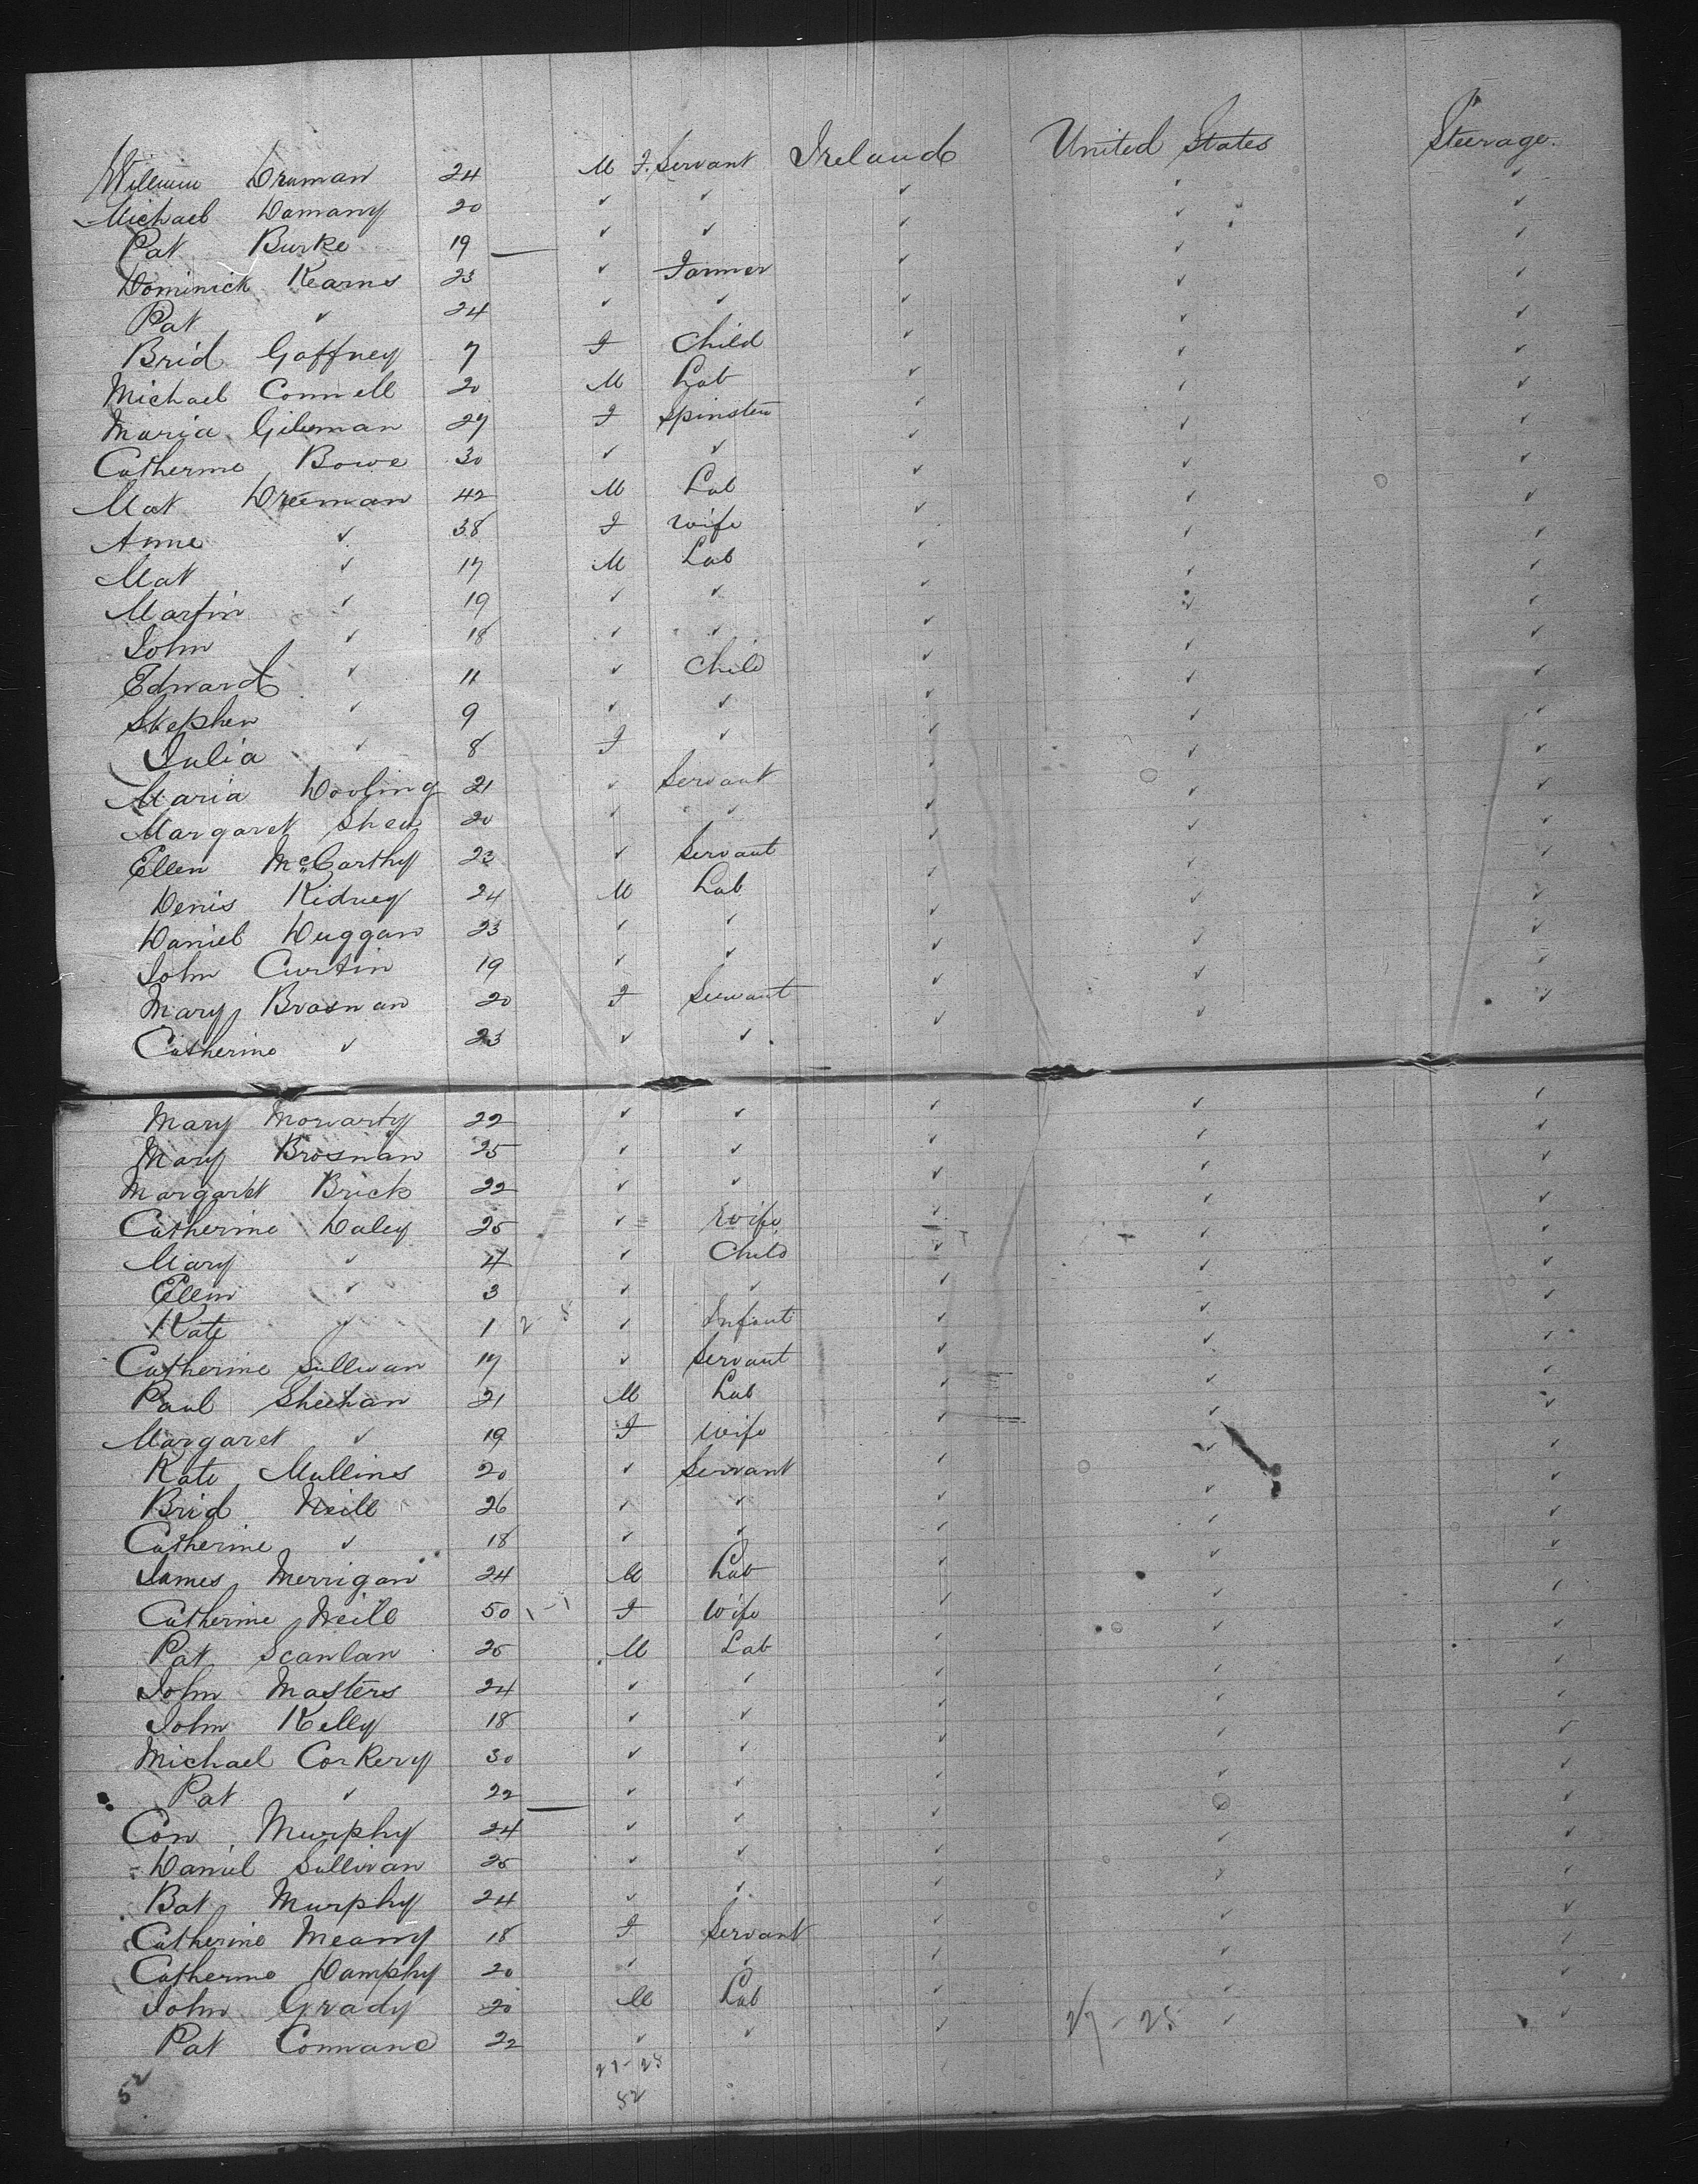 William Druman 24 M F. Servant Ireland United States Steerage.
Michael Damany 20 ✓ ✓ ✓ ✓ ✓
Pat Burke 19 — ✓ ✓ ✓ ✓ ✓
Dominick Kearns 23 ✓ Farmer ✓ ✓ ✓
Pat ✓ 24 ✓ ✓ ✓ ✓ ✓
Brid Gaffney 7 F Child ✓ ✓ ✓
Michael Connell 20 M Lab ✓ ✓ ✓
Maria 27 F Spinster ✓ ✓ ✓
Catherine Bowe 30 ✓ ✓ ✓ ✓ ✓
Mat Dreeman 42 M Lab ✓ ✓ ✓
Anne ✓ 38 F Wife ✓ ✓ ✓
Mat ✓ 17 M Lab ✓ ✓ ✓
Martin ✓ 19 ✓ ✓ ✓ ✓ ✓
John ✓ 18 ✓ ✓ ✓ ✓ ✓
Edward ✓ 11 ✓ Child ✓ ✓ ✓
Stephen ✓ 9 ✓ ✓ ✓ ✓ ✓
Julia ✓ 8 F ✓ ✓ ✓ ✓
Maria Dooling 21 ✓ Servant ✓ ✓ ✓
Margaret Shea 20 ✓ ✓ ✓ ✓ ✓
Ellen McCarthy 23 ✓ Servant ✓ ✓ ✓
Denis Kidney 24 M Lab ✓ ✓ ✓
Daniel Duggan 23 ✓ ✓ ✓ ✓ ✓
John Curtin 19 ✓ ✓ ✓ ✓ ✓
Mary Brosnan 20 F Servant ✓ ✓ ✓
Catherine ✓ 23 ✓ ✓ ✓ ✓ ✓
Mary Moriarty 22 ✓ ✓ ✓ ✓ ✓
Mary Brosnan 25 ✓ ✓ ✓ ✓ ✓
Margaret Brick 22 ✓ ✓ ✓ ✓ ✓
Catherine Daley 25 ✓ Wife ✓ ✓ ✓
Mary ✓ 4 ✓ Child ✓ ✓ ✓
Ellen ✓ 3 ✓ ✓ ✓ ✓ ✓
Kate ✓ 1 ✓ Infant ✓ ✓ ✓
Catherine Sullivan 17 ✓ Servant ✓ ✓ ✓
Paul Sheehan 21 M Lab ✓ ✓ ✓
Margaret ✓ 19 F Wife ✓ ✓ ✓
Kate Mullins 20 ✓ Servant ✓ ✓ ✓
Brid Neill 26 ✓ ✓ ✓ ✓ ✓
Catherine ✓ 18 ✓ ✓ ✓ ✓ ✓
James Merrigan 24 M Lab ✓ ✓ ✓
Catherine Neill 50 F Wife ✓ ✓ ✓
Pat Scanlan 25 M Lab ✓ ✓ ✓
John Masters 24 ✓ ✓ ✓ ✓ ✓
John Kelly 18 ✓ ✓ ✓ ✓ ✓
Michael Corkery 30 ✓ ✓ ✓ ✓ ✓
Pat ✓ 22 — ✓ ✓ ✓ ✓ ✓
Con Murphy 24 ✓ ✓ ✓ ✓ ✓
Daniel Sullivan 25 ✓ ✓ ✓ ✓ ✓
Bat Murphy 24 ✓ ✓ ✓ ✓ ✓
Catherine Meany 18 F Servant ✓ ✓ ✓
Catherine Damphy 20 ✓ ✓ ✓ ✓ ✓
John Grady 20 M Lab ✓ ✓ ✓
Pat 22 ✓ ✓ ✓ 27-25 ✓ ✓
52